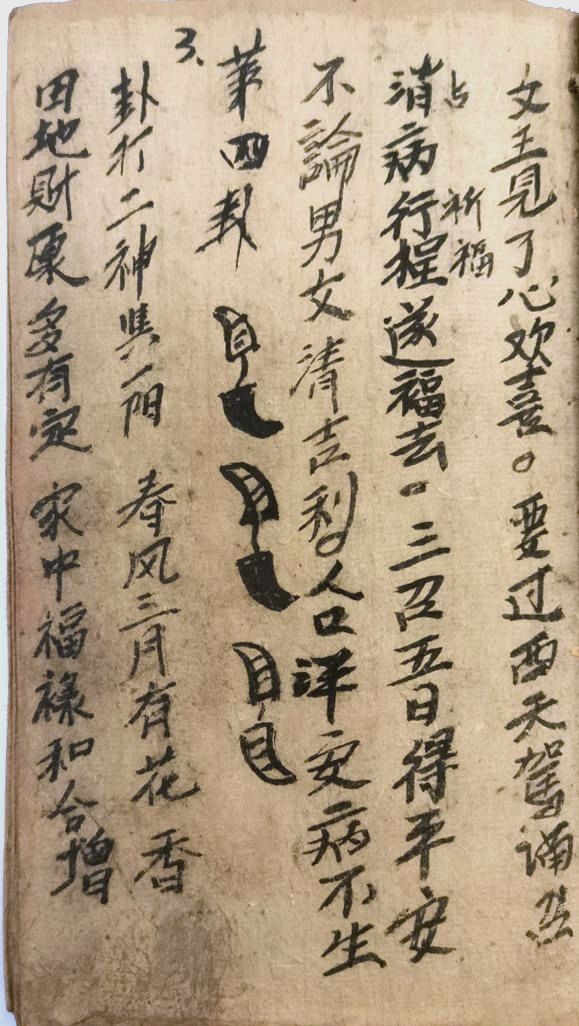 文王見了心欢喜。要过西天駕
占 祈福
消病行程遂福去。三召五日得平安
不論男女清吉利。人口洋安病不生
3、
第四卦
卦打二神興一阳 春风三月有花香
田地財禀多有定 家中福祿和合增